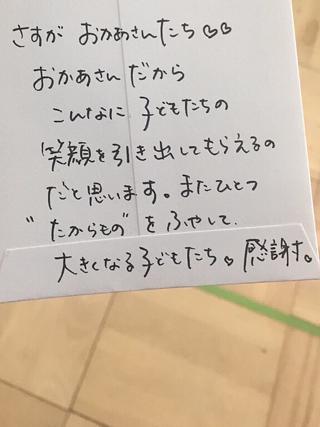 さすが おかあさんたち♡♡
おかあさん だから
こんなに 子どもたちの
笑顔を引き出してもらえるの
だと思います。またひとつ
"たからもの"を ふやして、
大きくなる子どもたち。感謝す。